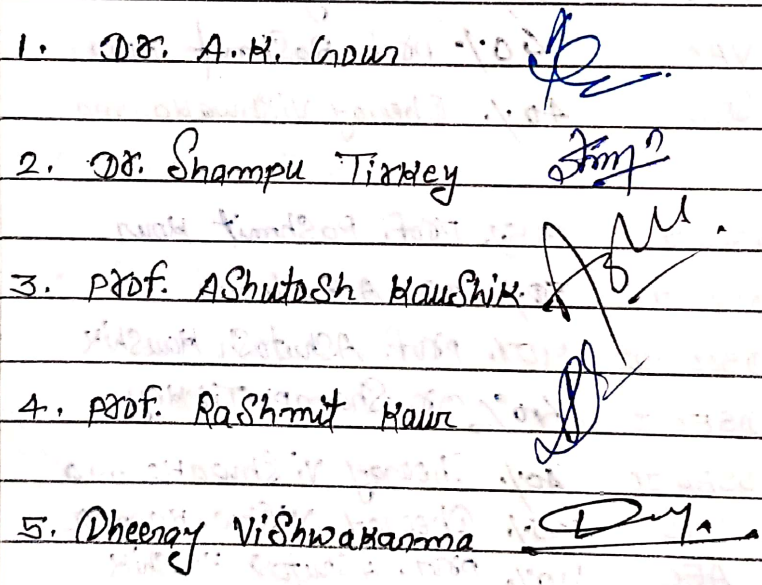 1. Dr. A.K. Gour
2. Dr. Shampu Tirkey
3. Prof. AShutoSh KauShik
4. Prof. RaShmit Kaur
5. Dheeraj ViShwaKarma